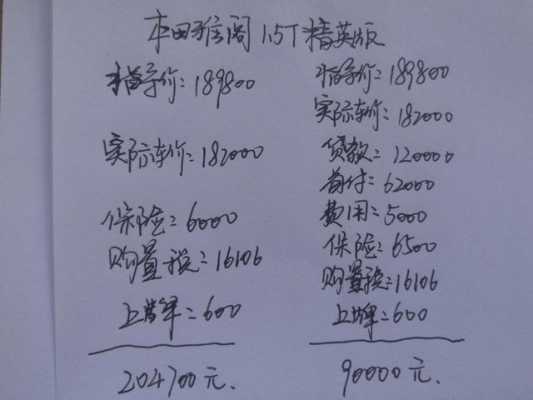 本田雅阁 1.5T 精英版
指导价:189800
实际车价:182000
保险:6000
购置税:16106
上牌:600
204700元.
指导价:189800
实际车价:182000
贷款:120000
首付:62000
费用:5000
保险:6500
购置税:16106
上牌:600
90000元.